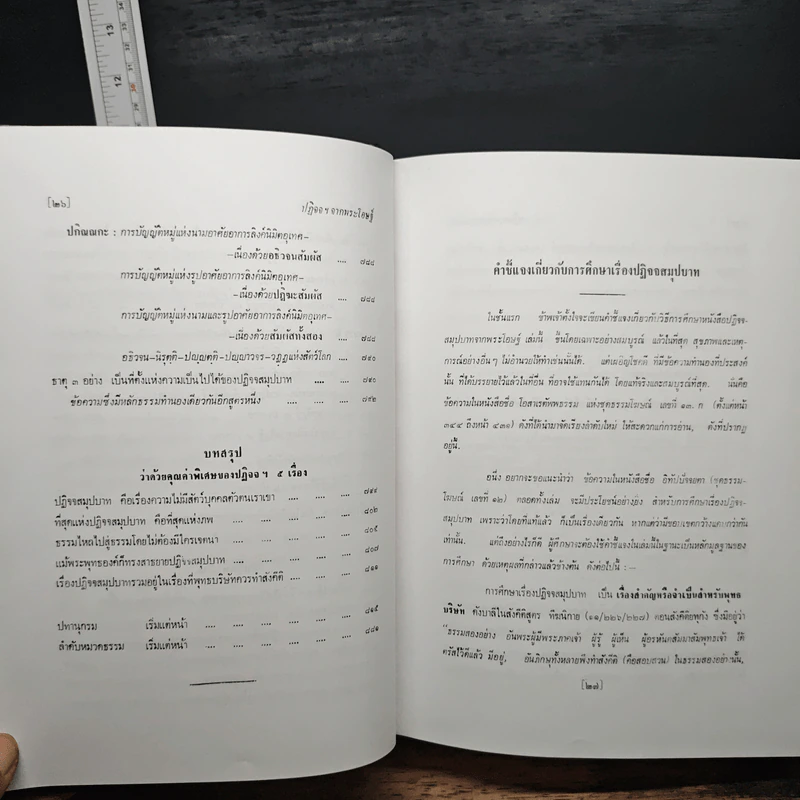 13
12
[๒๖]
ปฏิจจ ฯ จากพระโอษฐ์
ปกิณณกะ : การบัญญัติหมู่แห่งนามอาศัยอาการลิงค์นิมิตอุเทศ–
–เนื่องด้วยอธิวจนสัมผัส .... ๗๘๘
การบัญญัติหมู่แห่งรูปอาศัยอาการลิงค์นิมิตอุเทศ–
–เนื่องด้วยปฏิฆะสัมผัส .... ๗๘๘
การบัญญัติหมู่แห่งนามและรูปอาศัยอาการลิงค์นิมิตอุเทศ–
–เนื่องด้วยสัมผัสทั้งสอง .... ๗๘๘
อธิวจน–นิรุตฺติ–ปญฺญตฺติ–ปญฺญาวจร–วฏฺฏแห่งสัตว์โลก .... ๗๙๐
ธาตุ ๓ อย่าง เป็นที่ตั้งแห่งความเป็นไปได้ของปฏิจจสมุปบาท .... .... ๗๙๐
ข้อความซึ่งมีหลักธรรมทำนองเดียวกันอีกสูตรหนึ่ง .... .... .... ๗๙๒
บทสรุป
ว่าด้วยคุณค่าพิเศษของปฏิจจ ฯ ๕ เรื่อง
ปฏิจจสมุปบาท คือเรื่องความไม่มีสัตว์บุคคลตัวตนเราเขา .... .... .... ๗๙๙
ที่สุดแห่งปฏิจจสมุปบาท คือที่สุดแห่งภพ .... .... .... .... ๘๐๒
ธรรมไหลไปสู่ธรรมโดยไม่ต้องมีใครเจตนา .... .... .... .... ๘๐๕
แม้พระพุทธองค์ก็ทรงสาธยายปฏิจจสมุปบาท .... .... .... .... ๘๐๗
เรื่องปฏิจจสมุปบาทรวมอยู่ในเรื่องที่พุทธบริษัทควรทำสังคีติ .... .... ๘๑๑
ปทานุกรม เริ่มแต่หน้า .... .... .... .... .... ๘๑๕
ลำดับหมวดธรรม เริ่มแต่หน้า .... .... .... .... .... ๘๘๑
คำชี้แจงเกี่ยวกับการศึกษาเรื่องปฏิจจสมุปบาท
ในชั้นแรก ข้าพเจ้าตั้งใจจะเขียนคำชี้แจงเกี่ยวกับวิธีการศึกษาหนังสือปฏิจจ-
สมุปบาทจากพระโอษฐ์ เล่มนี้ ขึ้นโดยเฉพาะอย่างสมบูรณ์ แต่ในที่สุด สุขภาพและเหตุ-
การณ์อย่างอื่นๆ ไม่อำนวยให้ทำเช่นนั้นได้. แต่เผอิญโชคดี ที่มีข้อความทำนองที่ประสงค์
นั้น ที่ได้บรรยายไว้แล้วในที่อื่น ที่อาจใช้แทนกันได้ โดยแท้จริงและสมบูรณ์ที่สุด. นั่นคือ
ข้อความในหนังสือชื่อ โอสาเรตัพพธรรม แห่งชุดธรรมโฆษณ์ เลขที่ ๑๓. ก (ตั้งแต่หน้า
๓๔๔ ถึงหน้า ๔๓๑) ดังที่ได้นำมาจัดเรียงลำดับใหม่ ให้สะดวกแก่การอ่าน, ดังที่ปรากฏ
อยู่นี้.
อนึ่ง อยากจะขอแนะนำว่า ข้อความในหนังสือชื่อ อิทัปปัจจยตา (ชุดธรรม-
โฆษณ์ เลขที่ ๑๒) ตลอดทั้งเล่ม จะมีประโยชน์อย่างยิ่ง สำหรับการศึกษาเรื่องปฏิจจ-
สมุปบาท เพราะว่าโดยที่แท้แล้ว ก็เป็นเรื่องเดียวกัน หากแต่ว่ามีขอบเขตกว้างแคบกว่ากัน
เท่านั้น. แต่ถึงอย่างไรก็ดี ผู้ศึกษาจะต้องใช้คำชี้แจงในเล่มนี้ในฐานะเป็นหลักมูลฐานของ
การศึกษา ด้วยเหตุผลที่กล่าวแล้วข้างต้น ดังต่อไปนี้ : –
การศึกษาเรื่องปฏิจจสมุปบาท เป็น เรื่องสำคัญหรือจำเป็นสำหรับพุทธ
บริษัท ดังบาลีในสังคีติสูตร ทีฆนิกาย (๑๑/๒๒๖/๒๒๗) ตอนสังคีติยทุกัง ซึ่งมีอยู่ว่า
"ธรรมสองอย่าง อันพระผู้มีพระภาคเจ้า ผู้รู้ ผู้เห็น ผู้อรหันตสัมมาสัมพุทธเจ้า ได้
ตรัสไว้ดีแล้ว มีอยู่, อันภิกษุทั้งหลายพึงทำสังคีติ (คือสอบสวน) ในธรรมสองอย่างนั้น,
[๒๗]